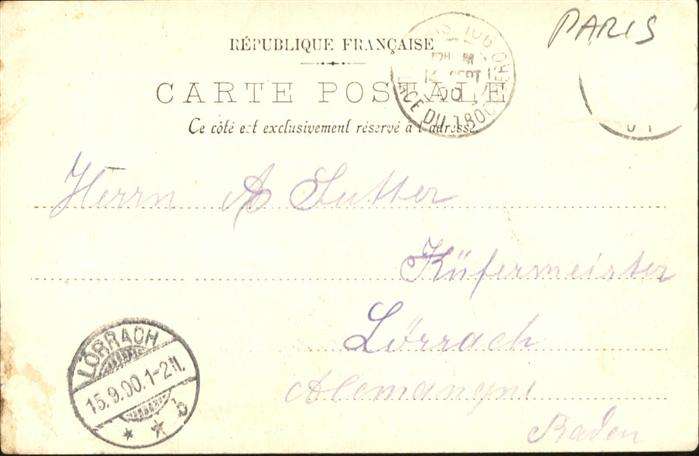 PARIS
RÉPUBLIQUE FRANÇAISE
CARTE POSTALE
Ce côté est exclusivement réservé à l'adresse
PLACE DU TROCADERO
SEPT
00
01
Herrn A Sutter
Küfermeister
Lörrach
Alemangne
Baden
LÖRRACH
15.9.00.1-2N.